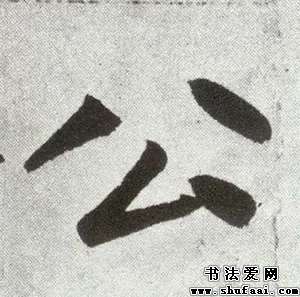 公
书法爱网
www.shufaai.com